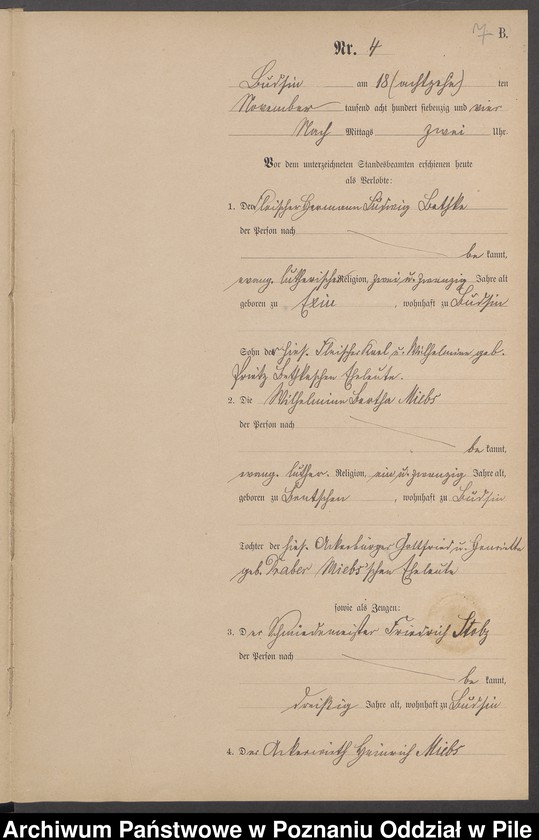 7 B.
Nr. 4
Budsin am 18 (achtzehn) ten
November tausend acht hundert siebenzig und vier
Nach Mittags zwei Uhr.
Vor dem unterzeichneten Standesbeamten erschienen heute
als Verlobte:
1. Der Fleischer Hermann Ludwig Bethke
der Person nach
be kannt,
evang. lutherischer Religion, zwei u. zwanzig Jahre alt
geboren zu Exin, wohnhaft zu Budsin
Sohn der hies. Fleischer Karl u. Wilhelmine geb.
Bethkeschen Eheleute.
2. Die Wilhelmine Bertha Miebs
der Person nach
be kannt,
evang. luther. Religion, ein u. zwanzig Jahre alt,
geboren zu Bentschen, wohnhaft zu Budsin
Tochter der hies. Ackerbürger Gottfried u. Henriette
geb. Miebs'schen Eheleute
sowie als Zeugen:
3. Der Schmiedemeister Friedrich Stolz
der Person nach
be kannt,
dreißig Jahre alt, wohnhaft zu Budsin
4. Der Ackerwirth Heinrich Miebs
Archiwum Państwowe w Poznaniu Oddział w Pile